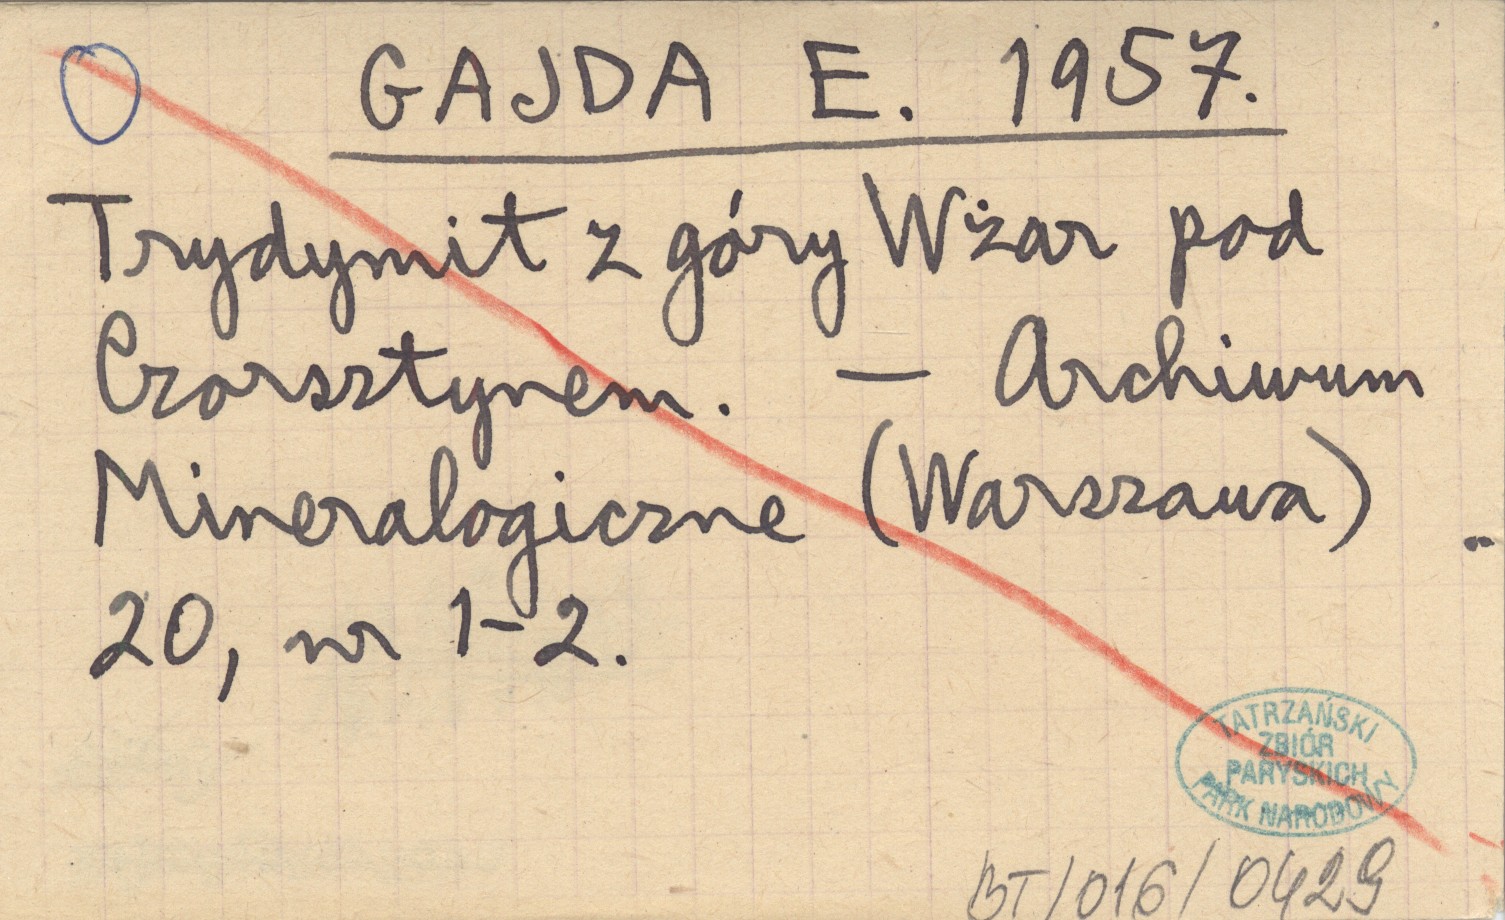 GAJDA E. 1957.
Trydymit z góry Wżar pod
Czorsztynem. — Archiwum
Mineralogiczne (Warszawa)
20, nr 1-2.
TATRZAŃSKI
ZBIÓR
PARYSKICH
PARK NARODOWY
BT/016/0429